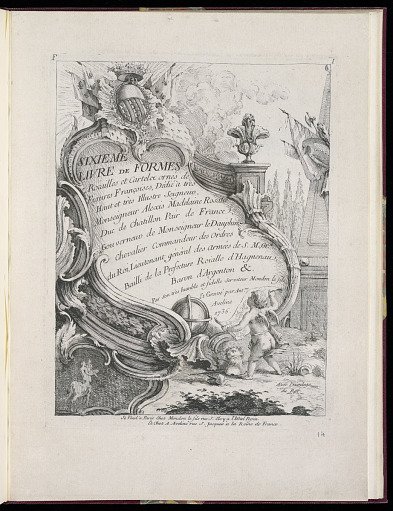 F
1
6
SIXIEME
LIVRE DE FORMES
Rocailles et Cartels ornés de
Figures Françoises, Dédié à très
Haut et très Illustre Seigneur
Monseigneur Alexis Madelaine Rosalie
Duc de Chatillon Pair de France,
Gouverneur de Monseigneur le Dauphin
Chevalier Commandeur des Ordres
du Roi, Lieutenant général des Armées de S. M. Gr.
Bailli de la Préfecture Royalle d'Haguenau,
Baron d'Argenton &c
Par son très humble et fidelle Serviteur Mondon le fils
Et Gravé par Ant.
Aveline
1736
Avec Privilege
du Roi
Se Vend à Paris Chez Mondon le fils rue St.
Et Chez A. Aveline rue St. Jacques à la Reine de France
14